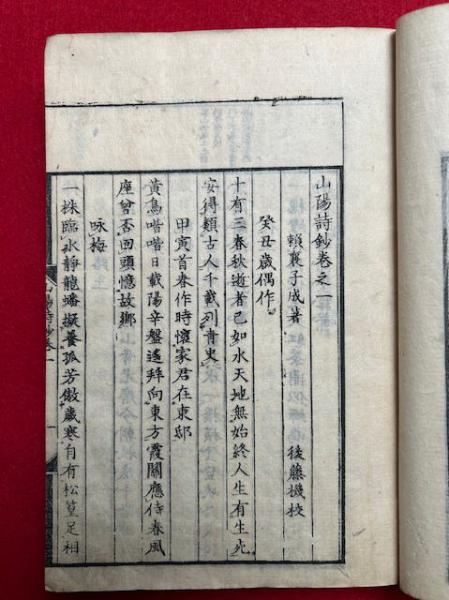 山陽詩鈔卷之一
賴襄子成著　後藤機校
癸丑歲偶作
十有三春秋逝者已如水天地無始終人生有生死
安得類古人千載列青史
甲寅首春作時懷家君在東邸
黃鳥喈喈日載陽辛盤遙拜向東方霞關應侍春風
座曾否回頭憶故鄉
咏梅
一株臨水靜龍蟠擬養孤芳傲歲寒自有松篁足相
山陽詩鈔卷一